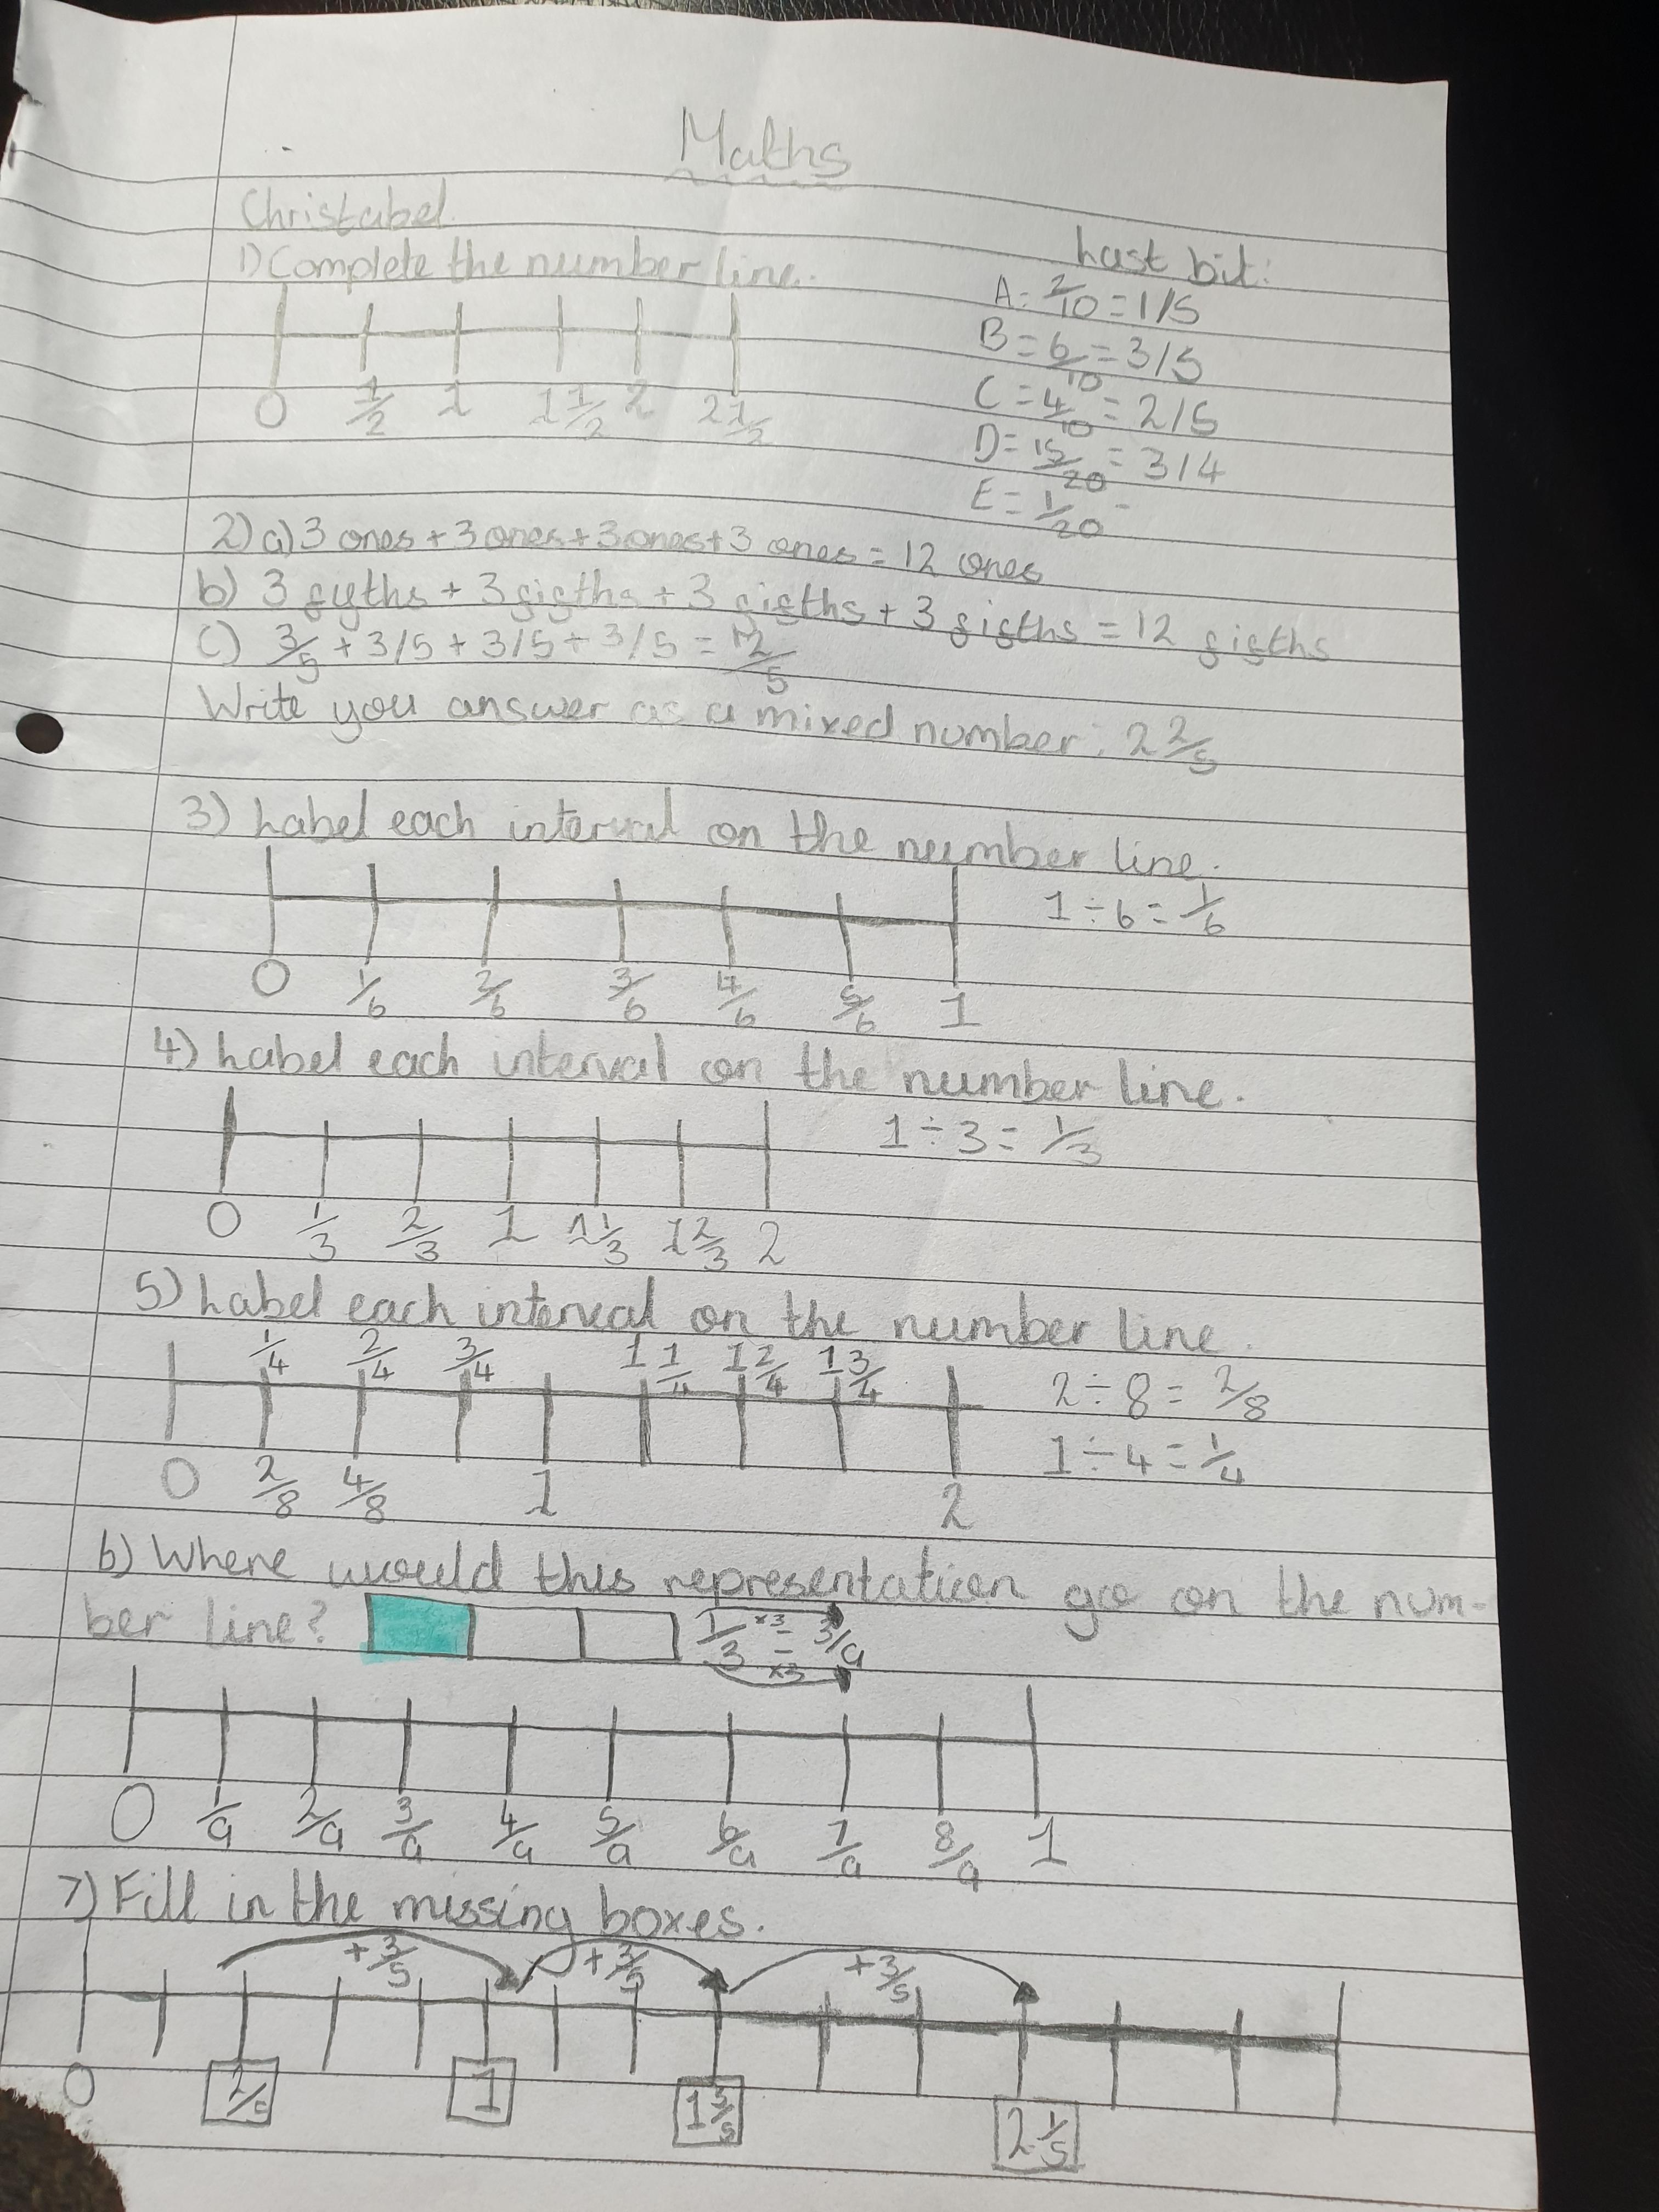 Maths
Christabel
1) Complete the number line.
0 1/2 1 1 1/2 2 2 1/2
Last bit:
A = 2/10 = 1/5
B = 6/10 = 3/5
C = 4/10 = 2/5
D = 15/20 = 3/4
E = 1/20 -
2) a) 3 ones + 3 ones + 3 ones + 3 ones = 12 ones
b) 3 gyths + 3 gigths + 3 gigths + 3 gigths = 12 gigths
c) 3/5 + 3/5 + 3/5 + 3/5 = 12/5
Write you answer as a mixed number: 2 2/5
3) Label each interval on the number line.
1 ÷ 6 = 1/6
0 1/6 2/6 3/6 4/6 5/6 1
4) Label each interval on the number line.
1 ÷ 3 = 1/3
0 1/3 2/3 1 1 1/3 1 2/3 2
5) Label each interval on the number line.
1/4 2/4 3/4 1 1/4 1 2/4 1 3/4
2 ÷ 8 = 2/8
1 ÷ 4 = 1/4
0 2/8 4/8 1 2
6) Where would this representation go on the num-
ber line? 1/3 = 3/9
×3
×3
0 1/9 2/9 3/9 4/9 5/9 6/9 7/9 8/9 1
7) Fill in the missing boxes.
+3/5 +3/5 +3/5
0 2/5 1 1 3/5 2 1/5